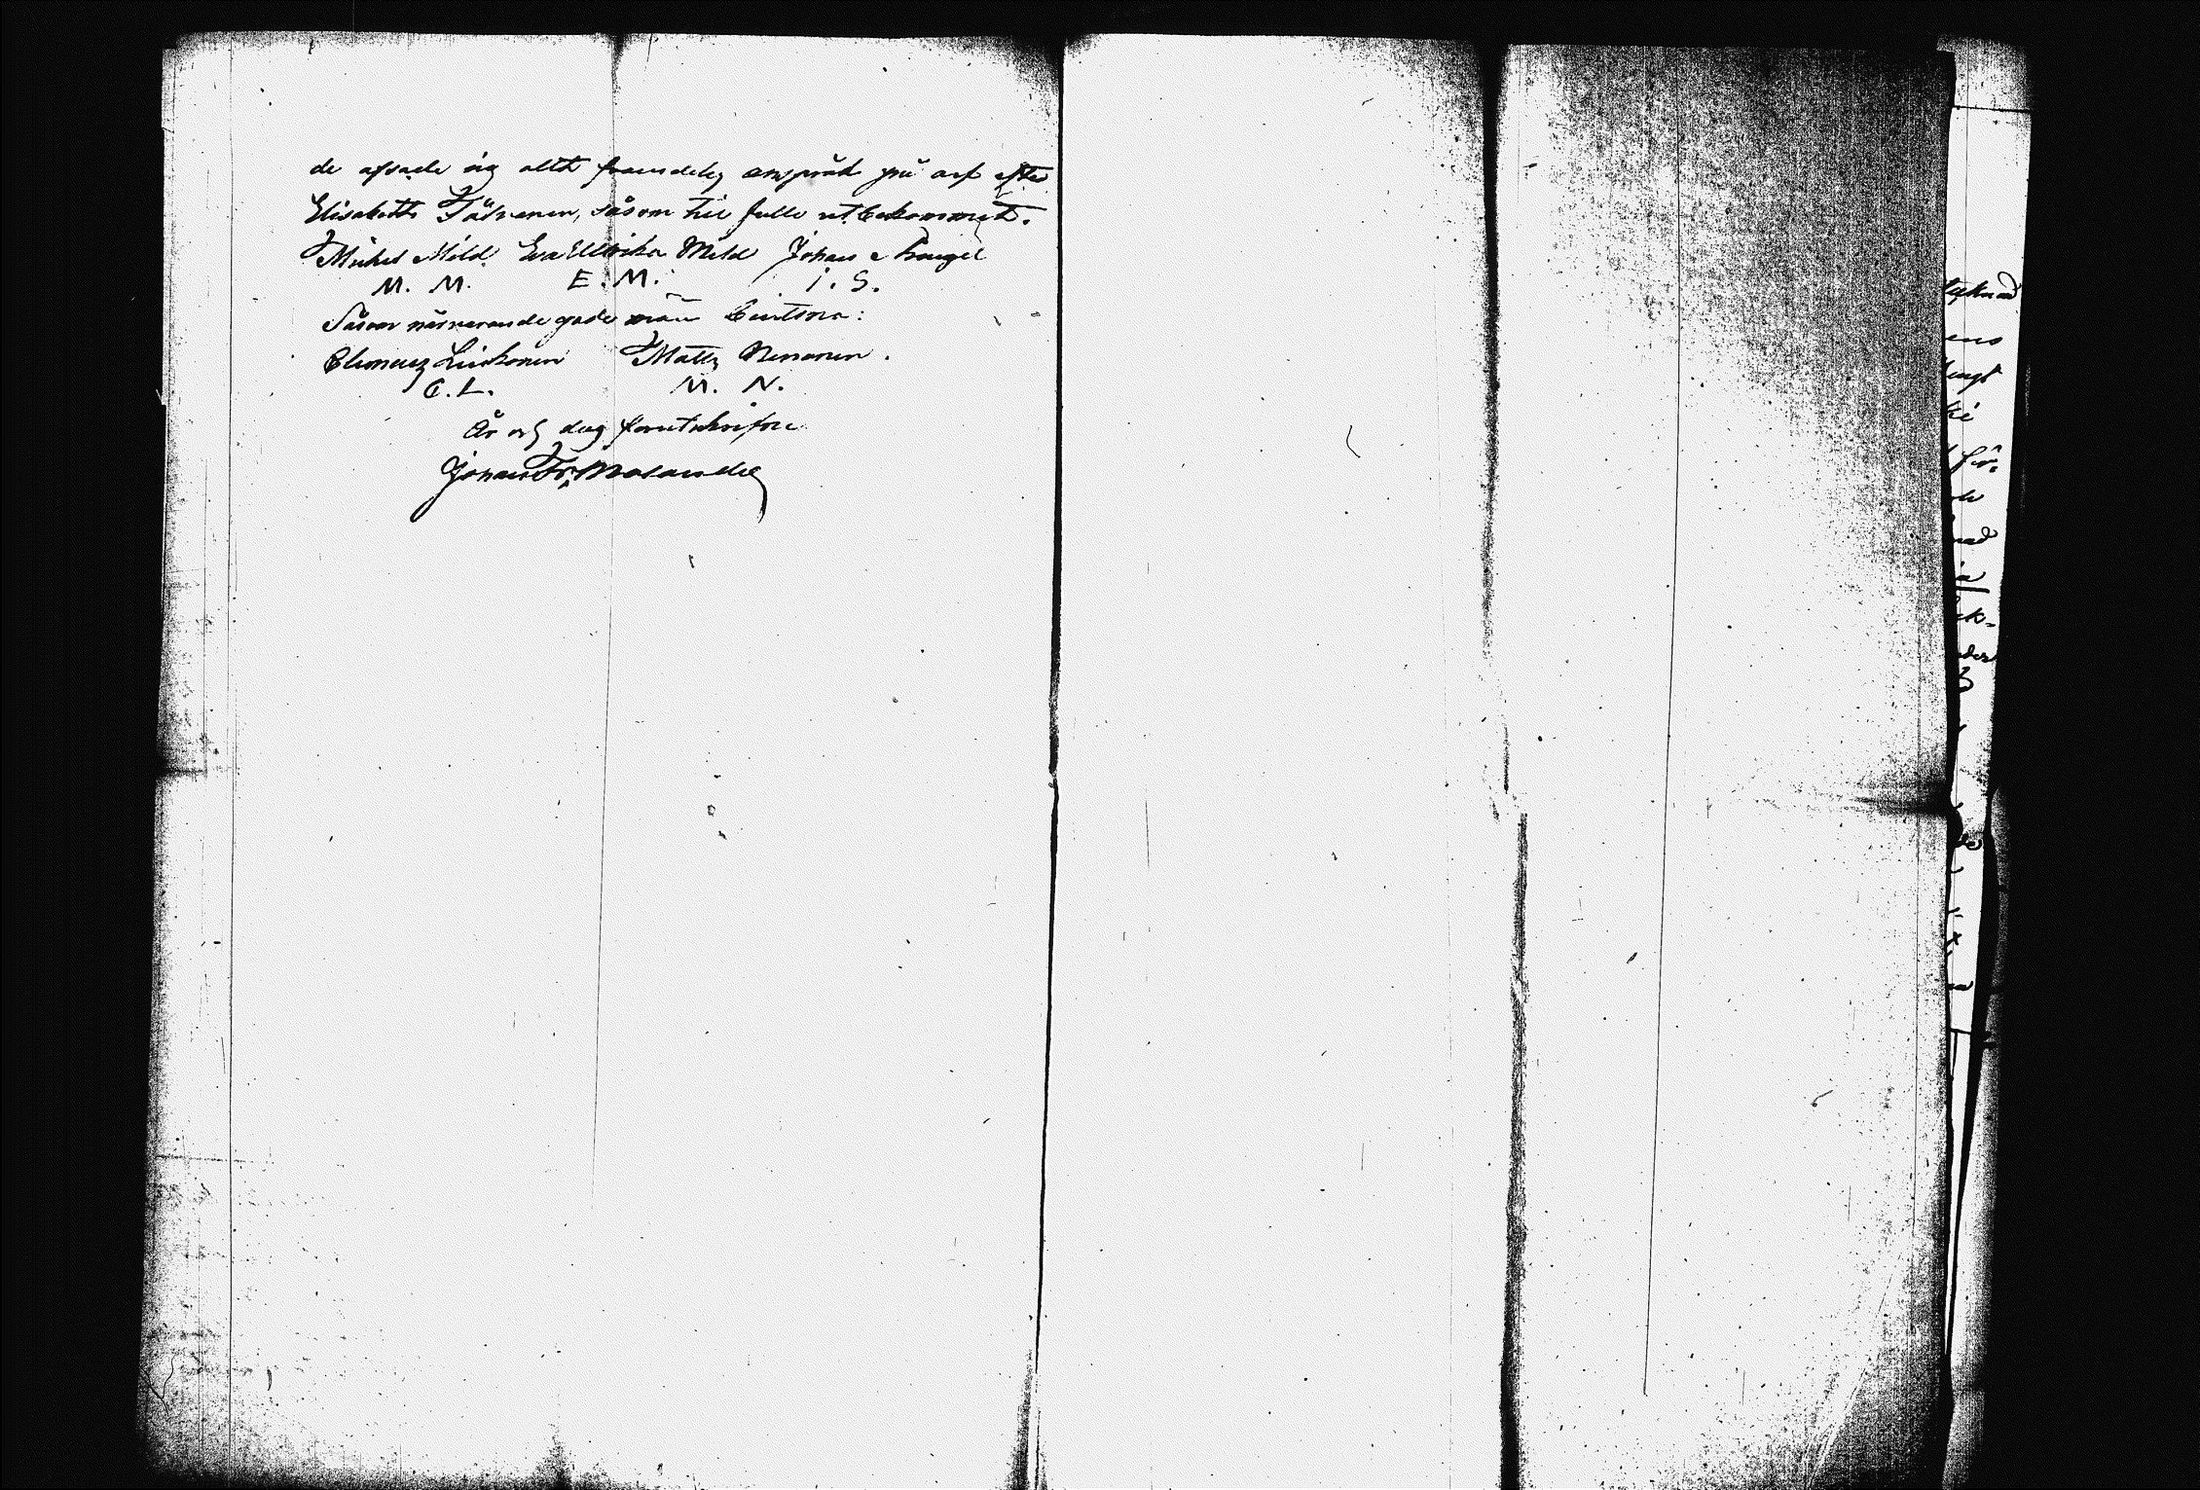 de afsade sig allt framdeles anspråk på arf efter
Elisabeth Tätinen, såsom till fullo utbekommit.
Michel Mild Eva Ullrika Mild Johan Skougel
M. M. E. M. I. S.
Såsom närvarande gode män bevitna:
Clemetz Liukonen Matts Nenonen.
C. L. M. N.
År och dag förutskrifne
Johan Fr. Molander